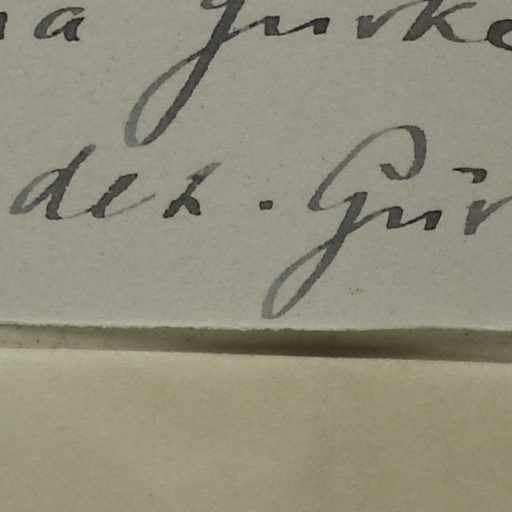 na gurke
dez. Gür